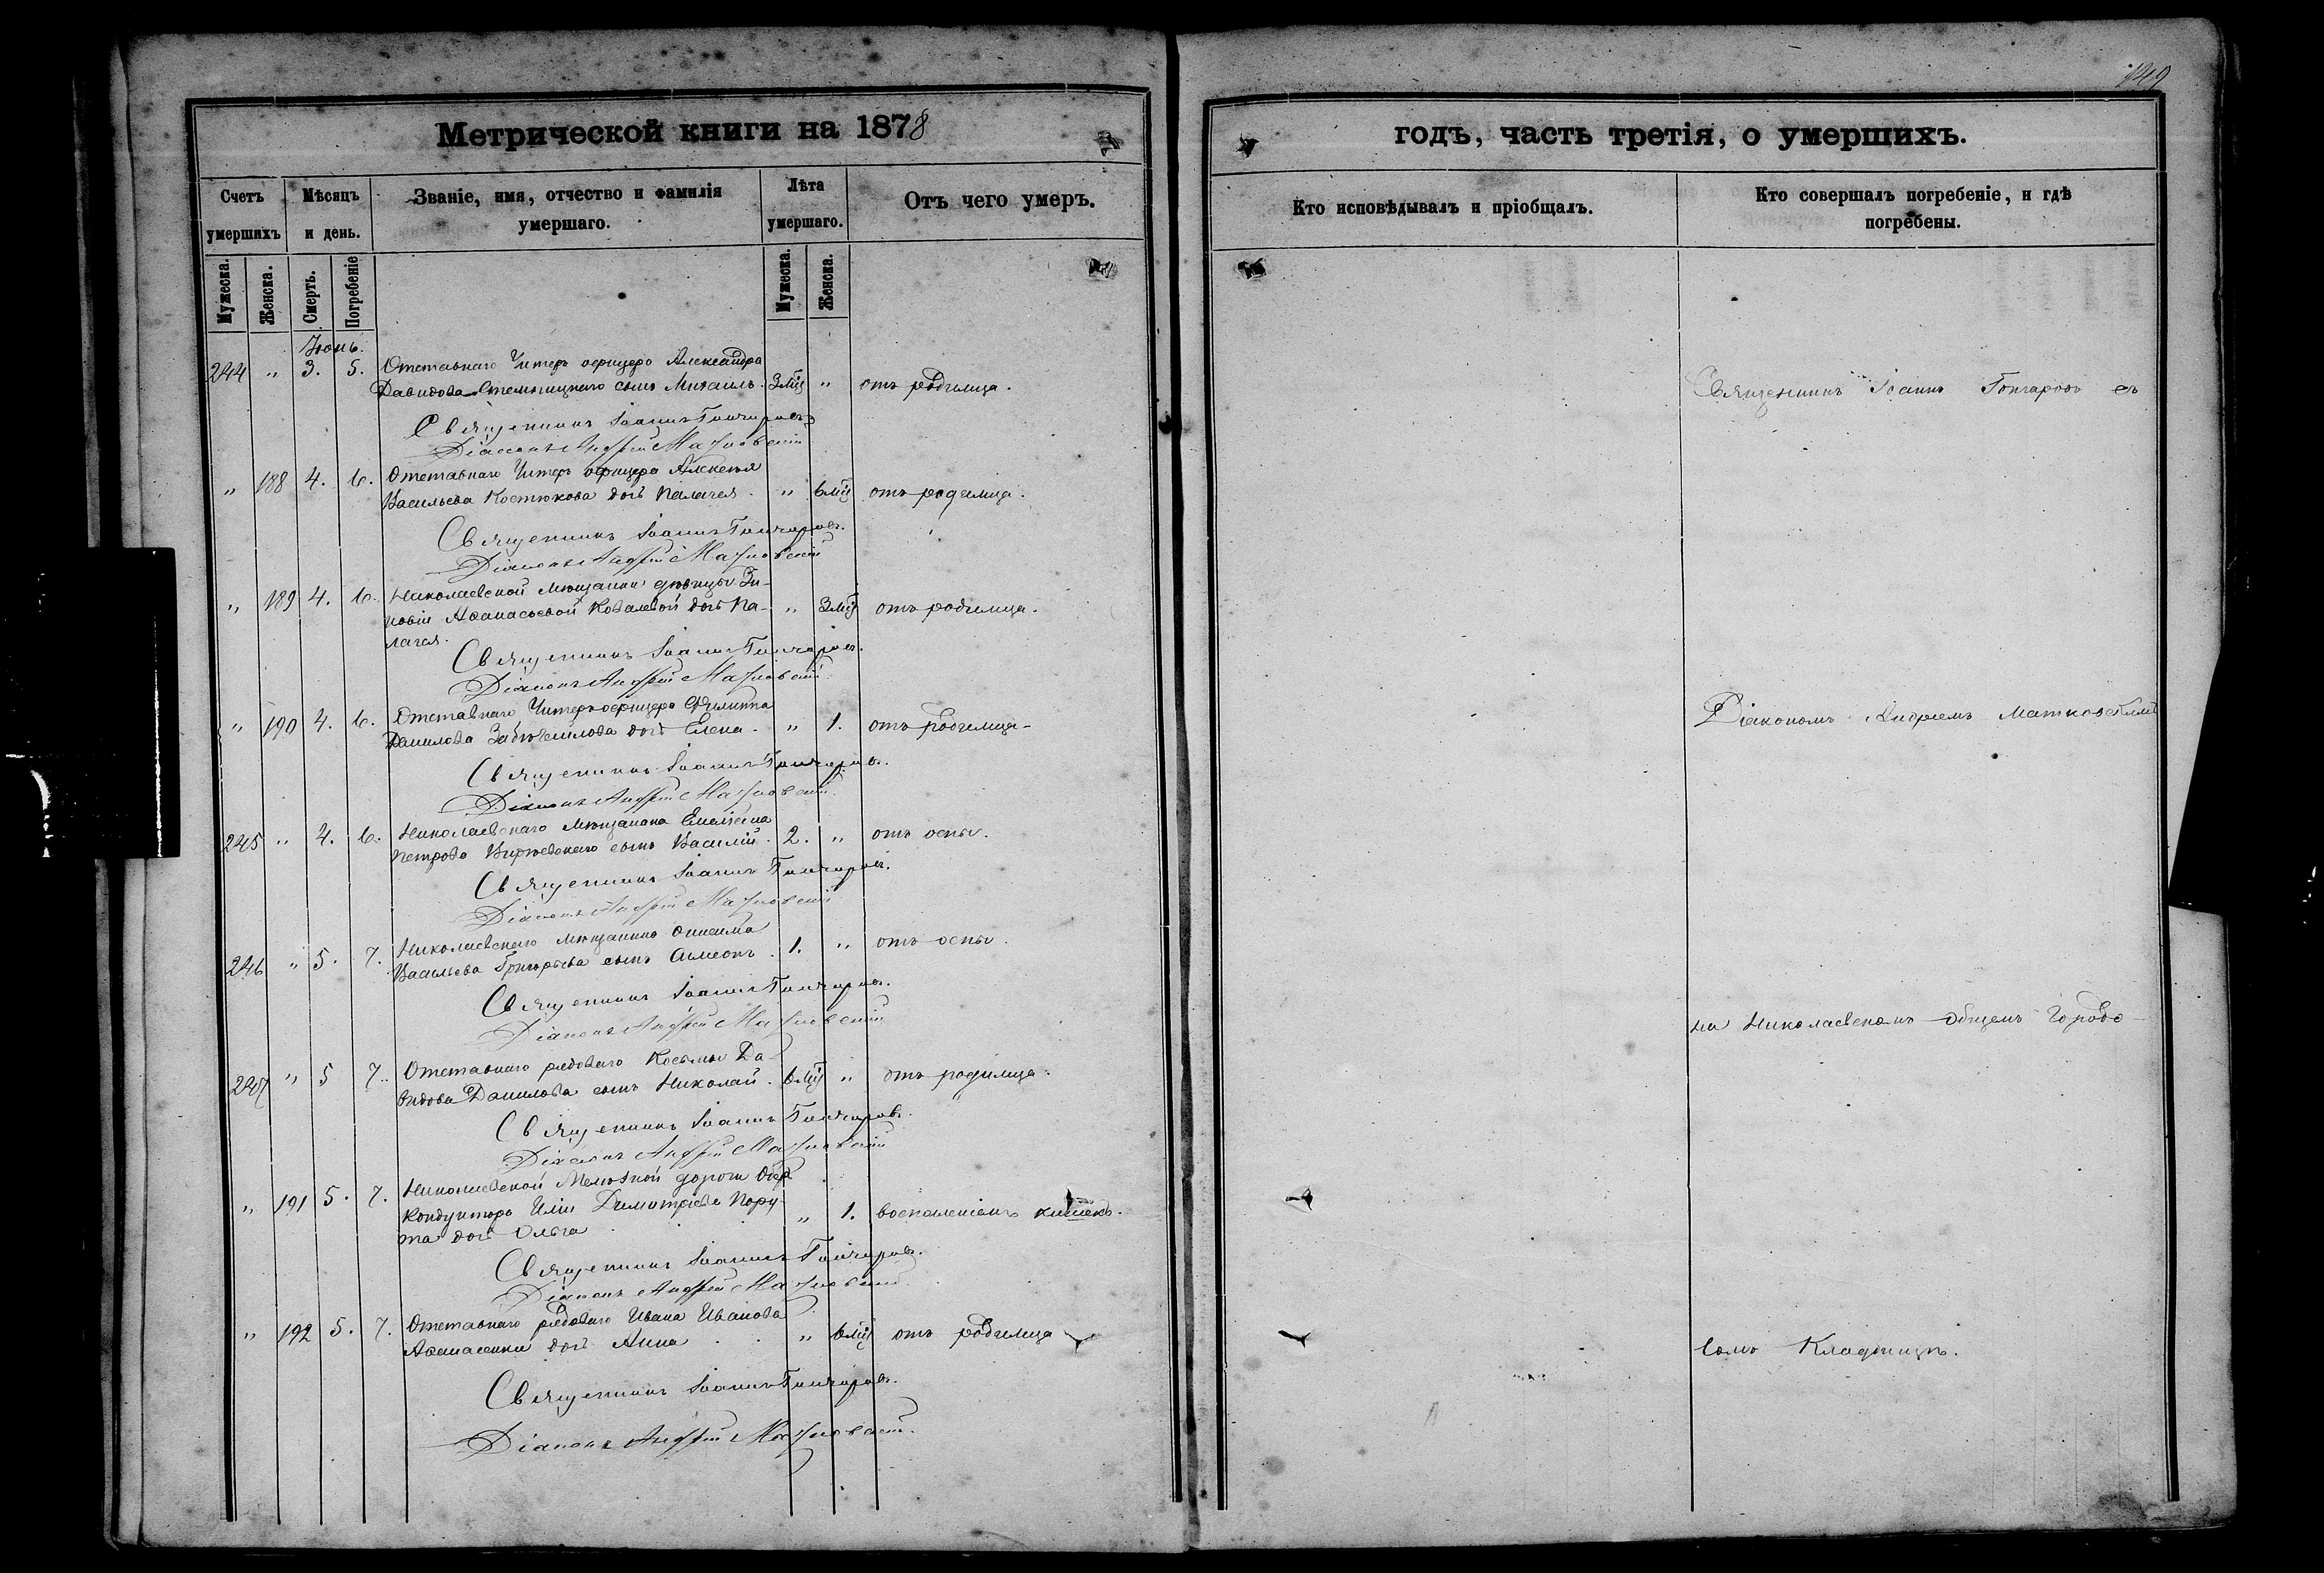 149
Метрической книги на 1878
годъ, часть третія, о умершихъ.
Счетъ умершихъ
Мѣсяцъ и день.
Званіе, имя, отчество и фамилія умершаго.
Лѣта умершаго.
Отъ чего умеръ.
Кто исповѣдывалъ и пріобщалъ.
Кто совершалъ погребеніе, и гдѣ погребены.
Мужеска.
Женска.
Смерть.
Погребеніе
Мужеска.
Женска.
Іюнь.
244 " 3. 5. Отставнаго Унтеръ офицера Александра
Давидова Стемпицкаго сынъ Михаилъ. 3 мц " отъ родимца.
Священникъ Іоаннъ Гончаровъ
Діаконъ Андрей Матковскій
" 188 4. 6. Отставнаго Унтеръ офицера Алексея
Васильева Костюкова дочь Пелагея. " 6 мц отъ родимца.
Священникъ Іоаннъ Гончаровъ.
Діаконъ Андрей Матковскій
" 189 4. 6. Николаевской мѣщанки дѣвицы Зи-
новіи Аѳанасьевой Ковалевой дочь Пе- " 3 мц отъ родимца.
лагея.
Священникъ Іоаннъ Гончаровъ.
Діаконъ Андрей Матковскій
" 190 4. 6. Отставнаго Унтеръ-офицера Филиппа
Данилова дочь Елена. " 1. отъ родимца
Священникъ Іоаннъ Гончаровъ.
Діаконъ Андрей Матковскій
245 " 4. 6. Николаевскаго мѣщанина Емеліана
Петрова сынъ Василій. 2. " отъ оспы.
Священникъ Іоаннъ Гончаровъ.
Діаконъ Андрей Матковскій
246 " 5. 7. Николаевскаго мѣщанина Онисима
Васильева Григорьева сынъ Симеонъ. 1. " отъ оспы.
Священникъ Іоаннъ Гончаровъ.
Діаконъ Андрей Матковскій
247 " 5 7. Отставнаго рядоваго Косьмы Да-
видова Данилова сынъ Николай. 6 мц " отъ родимца.
Священникъ Іоаннъ Гончаровъ.
Діаконъ Андрей Матковскій
" 191 5. 7. Николаевской Желѣзной дороги Обер
Кондуктора Иліи Димитріева Пору-
та дочь Ольга " 1. воспаленіемъ кишекъ.
Священникъ Іоаннъ Гончаровъ.
Діаконъ Андрей Матковскій
" 192 5. 7. Отставнаго рядоваго Ивана Иванова
Аѳанасенки дочь Анна " 6 мц отъ родимца
Священникъ Іоаннъ Гончаровъ.
Діаконъ Андрей Матковскій.
Священникъ Іоаннъ Гончаровъ съ
Діакономъ Андреемъ Матковскимъ
на Николаевскомъ общемъ Городс-
комъ Кладбищѣ.